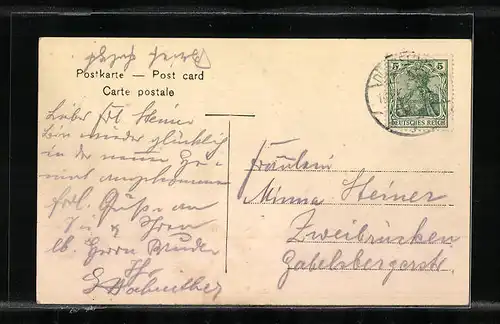 Postkarte — Post card
Carte postale
Liebe Frl. Steiner
bin wieder glücklich
in der neuen Hei-
mat angekommen
frdl. Grüße an
Sie & Ihren
lb. Herrn Bruder
Fräulein
Minna Steiner
Zweibrücken
Gabelsbergerstr.
5 5
DEUTSCHES REICH